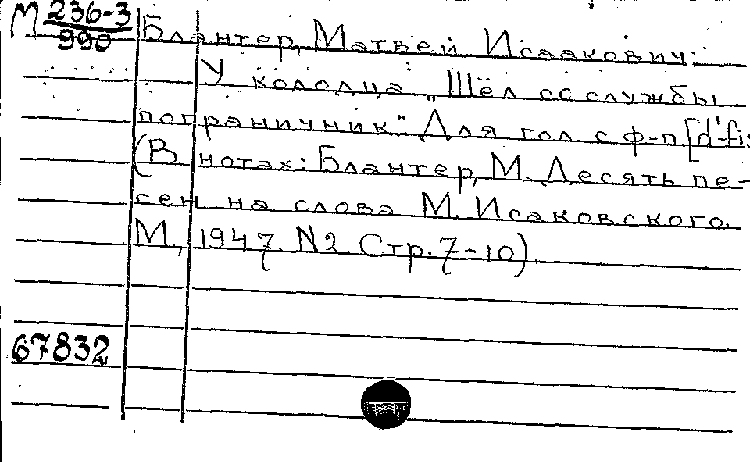 М 236-3
990
Блантер, Матвей Исаакович.
У колодца „Шёл со службы
пограничник". Для гол. с ф-п [d'-fis
(В нотах: Блантер, М. Десять пе-
сен на слова М. Исаковского.
М., 1947. N2 Стр. 7-10).
67832